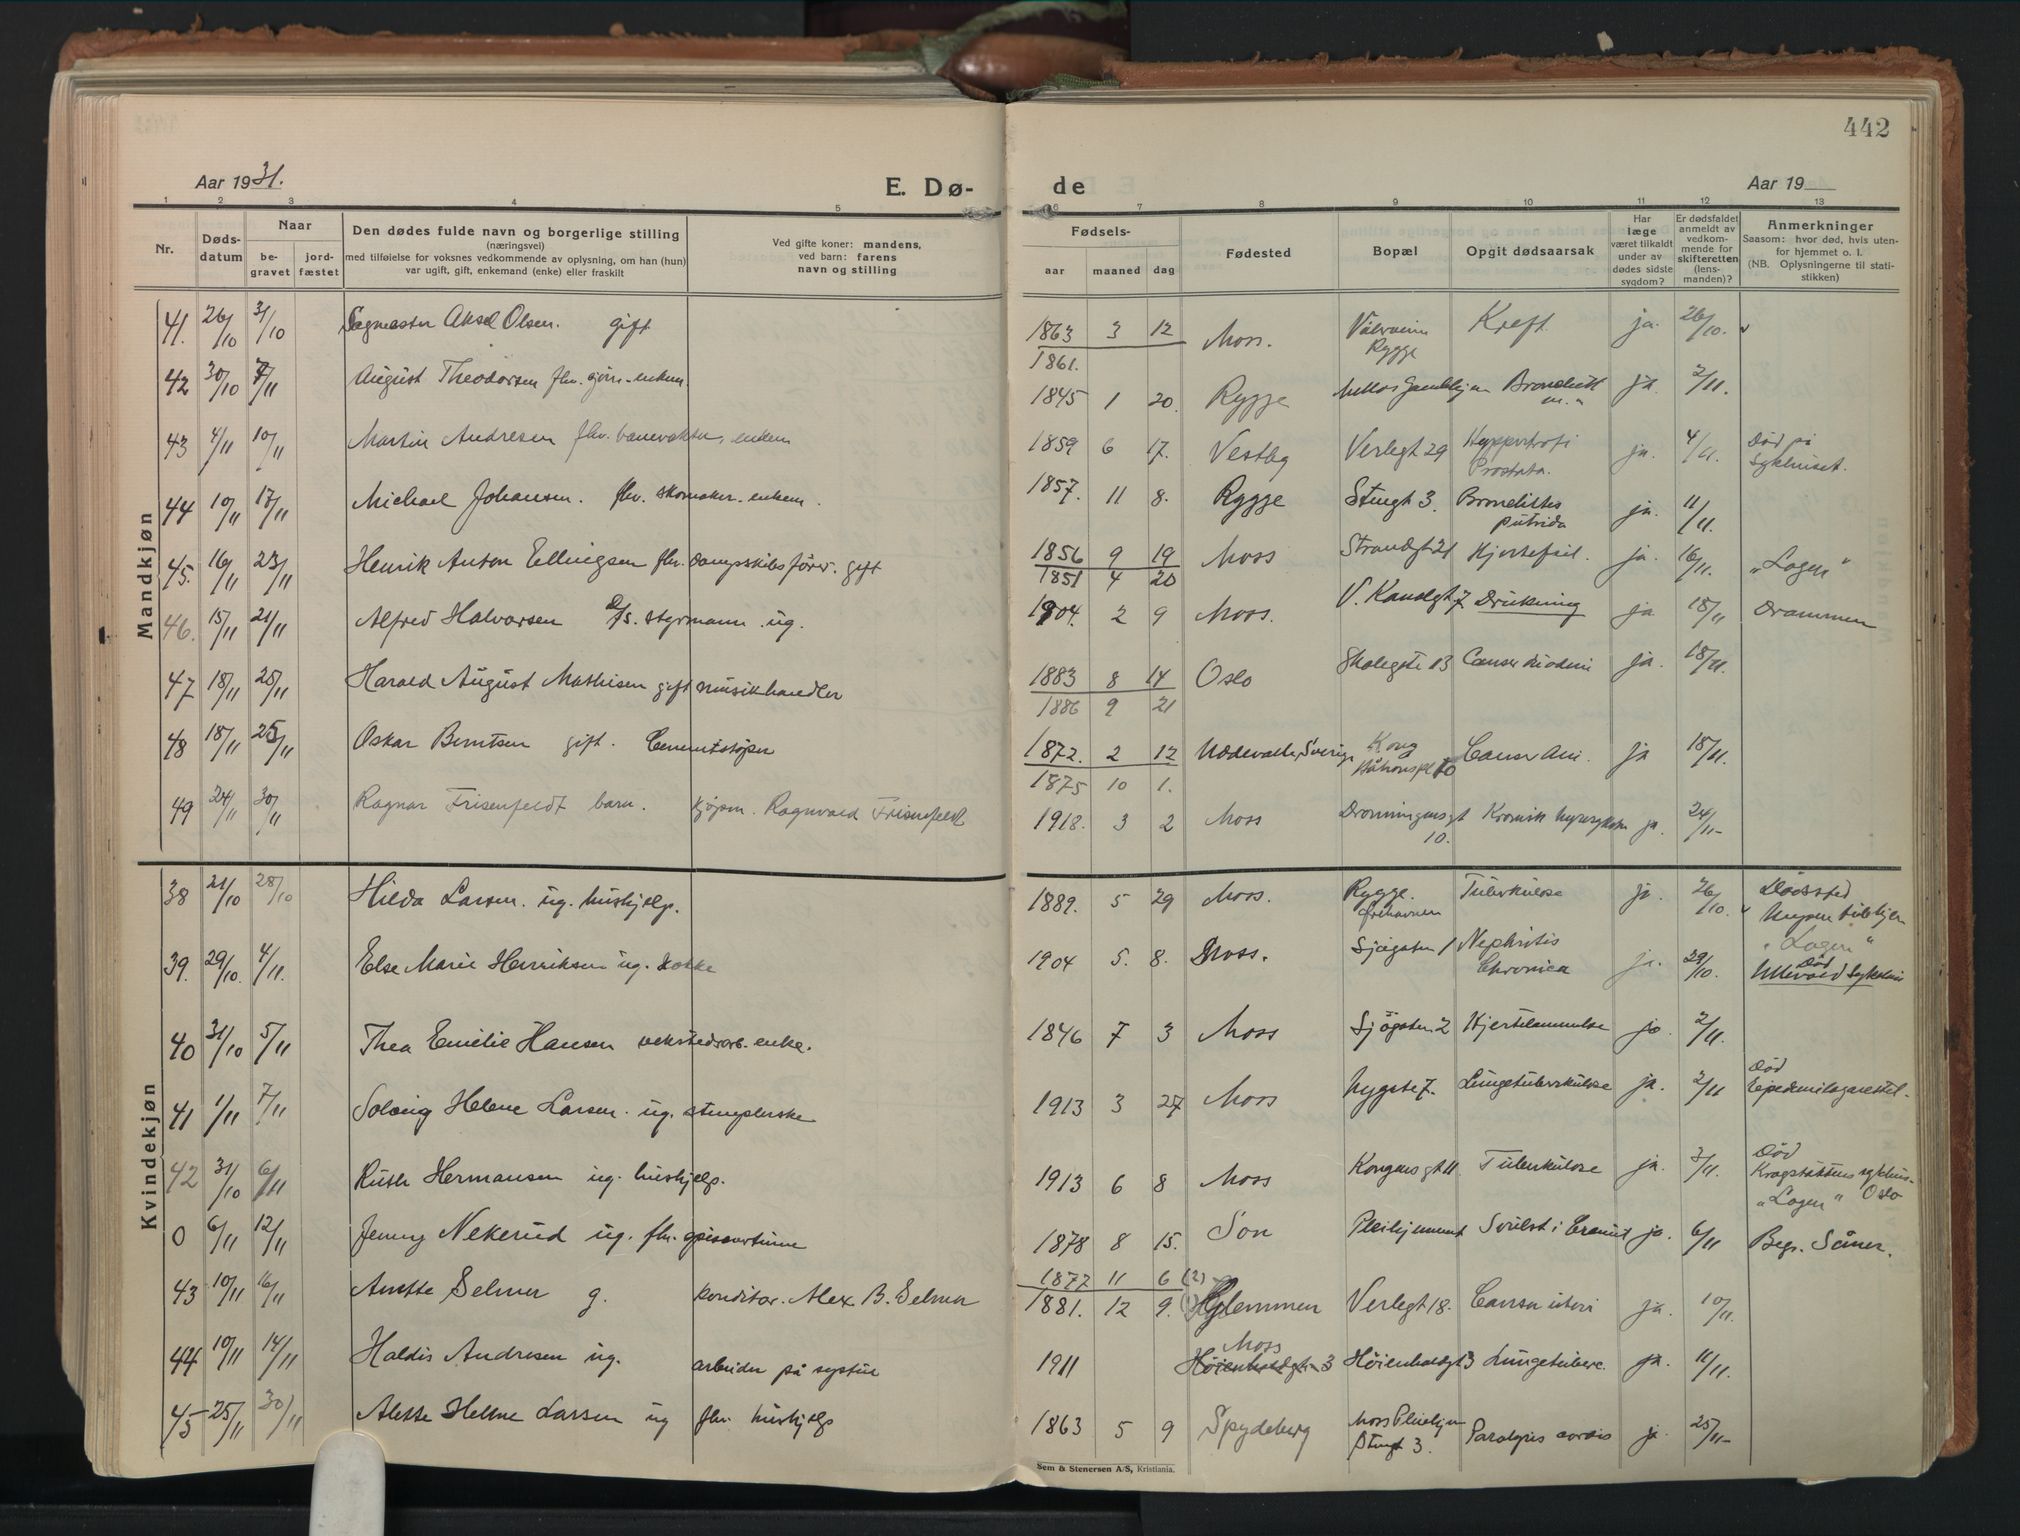 442
Aar 1931. E. Dø- de Aar 19
1 2 3 4 5 6 7 8 9 10 11 12 13
Nr. Døds-datum Naar begravet jordfæstet Den dødes fulde navn og borgerlige stilling (næringsvei) med tilføielse for voksnes vedkommende av oplysning, om han (hun) var ugift, gift, enkemand (enke) eller fraskilt Ved gifte koner: mandens, ved barn: farens navn og stilling Fødsels- aar maaned dag Fødested Bopæl Opgit dødsaarsak Har læge været tilkaldt under av dødes sidste sygdom? Er dødsfaldet anmeldt av vedkommende for skifteretten (lensmanden)? Anmerkninger Saasom: hvor død, hvis utenfor hjemmet o. l. (NB. Oplysningerne til statistikken)
Mandkjøn
41. 26/10 31/10 Sagmester Aksel Olsen. gift 1863 3 12 Moss. Rygge Kreft. ja. 26/10.
1861.
42 30/10 7/11 August Theodorsen fhv. enkem. 1845 1 20. Rygge ja. 2/11.
43 4/11 10/11 Martin Andresen fhv. banevokter, enkem 1859 6 17. Vestby Verlegt 29 Hyppertrofi Prostata. ja. 4/11. Død på Sykhuset.
44 10/11 17/11 Michael Johansen. fhv. skomaker. enkem. 1857. 11 8. Rygge Stengt 3. Bronchittes putrida ja. 11/11.
45. 16/11 23/11 Henrik Anton Ellingsen fhv. dampskibsfører. gift 1856 9 19 Moss Strandgt 21 Hjertefeil. ja. 16/11. "Logen"
1851 4 20
46. 15/11 21/11 Alfred Halvorsen D/S. styrmann. ug. 1904. 2 9 Moss. V. Kanalgt 7 Drukning ja 18/11 Drammen
47 18/11 25/11 Harald August Mathisen gift musikhandler 1883 8 14 Oslo Skolegate 13 ja. 18/11.
1886 9 21
48 18/11 25/11 Oskar Berntsen gift. Cementstøper 1872. 2 12 Uddevalla, Sverige Kong Håkonspl 10 Cancer Ani. ja 18/11.
1875 10 1.
49 24/11 30/11 Ragnar Frisenfeldt barn. kjøpm. Ragnvald Frisenfeldt 1918. 3 2 Moss Dronningensgt 10. Kronisk nyresykdom ja. 24/11-
Kvindekjøn
38 21/10 28/10 Hilda Larsen. ug. hushjelp. 1889. 5 29 Moss. Rygge. Tuberkulose ja. 26/10. Dødssted
39. 29/10. 4/11. Else Marie Henriksen ug. kokke 1904 5. 8. Moss. Sjøgaten 1 Nephritis Chronica ja. 29/10. "Logen" Død Ullevold Sykehus
40 31/10 5/11 Thea Emilie Hansen verkstedsarb. enke. 1846 7 3 Moss Sjøgaten 2 Hjertelammelse ja. 2/11.
41 1/11 7/11 Solveig Helene Larsen. ug. stemplerske 1913 3 27 Moss Nygate 7. Lungetuberkulose ja. 2/11 Død Epedemilasarettet.
42 31/10 6/11 Ruth Hermansen ug. hushjelp. 1913 6 8 Moss Kongensgt 11 Tuberkulose ja. 3/11. Død Kragstøttens sykhus- "Logen" Oslo
0 6/11 12/11 Jenny Nekerud ug. fhv. spisevertinne 1878 8 15. Son Pleihjemmet Svulst i Craniet ja. 6/11 Begr. Såner.
1877 11 6 (2)
43 10/11 16/11 Anette Selmer g. konditor. Alex B. Selmer 1881. 12 9. Glemmen Verlegt 18. Cancer uteri ja. 10/11.
44 10/11 14/11 Haldis Andresen ug. arbeider på systue 1911 Moss Høienhaldgt 3 Høienhaldgt 3 Lungetuberc. ja. 11/11.
45 25/11 30/11 Alette Helene Larsen ug fhv. hushjelp 1863 5 9 Spydeberg Moss Pleiehjem Stengt 3. Paralysis cordis ja. 25/11-
Sem & Stenersen A/S, Kristiania.